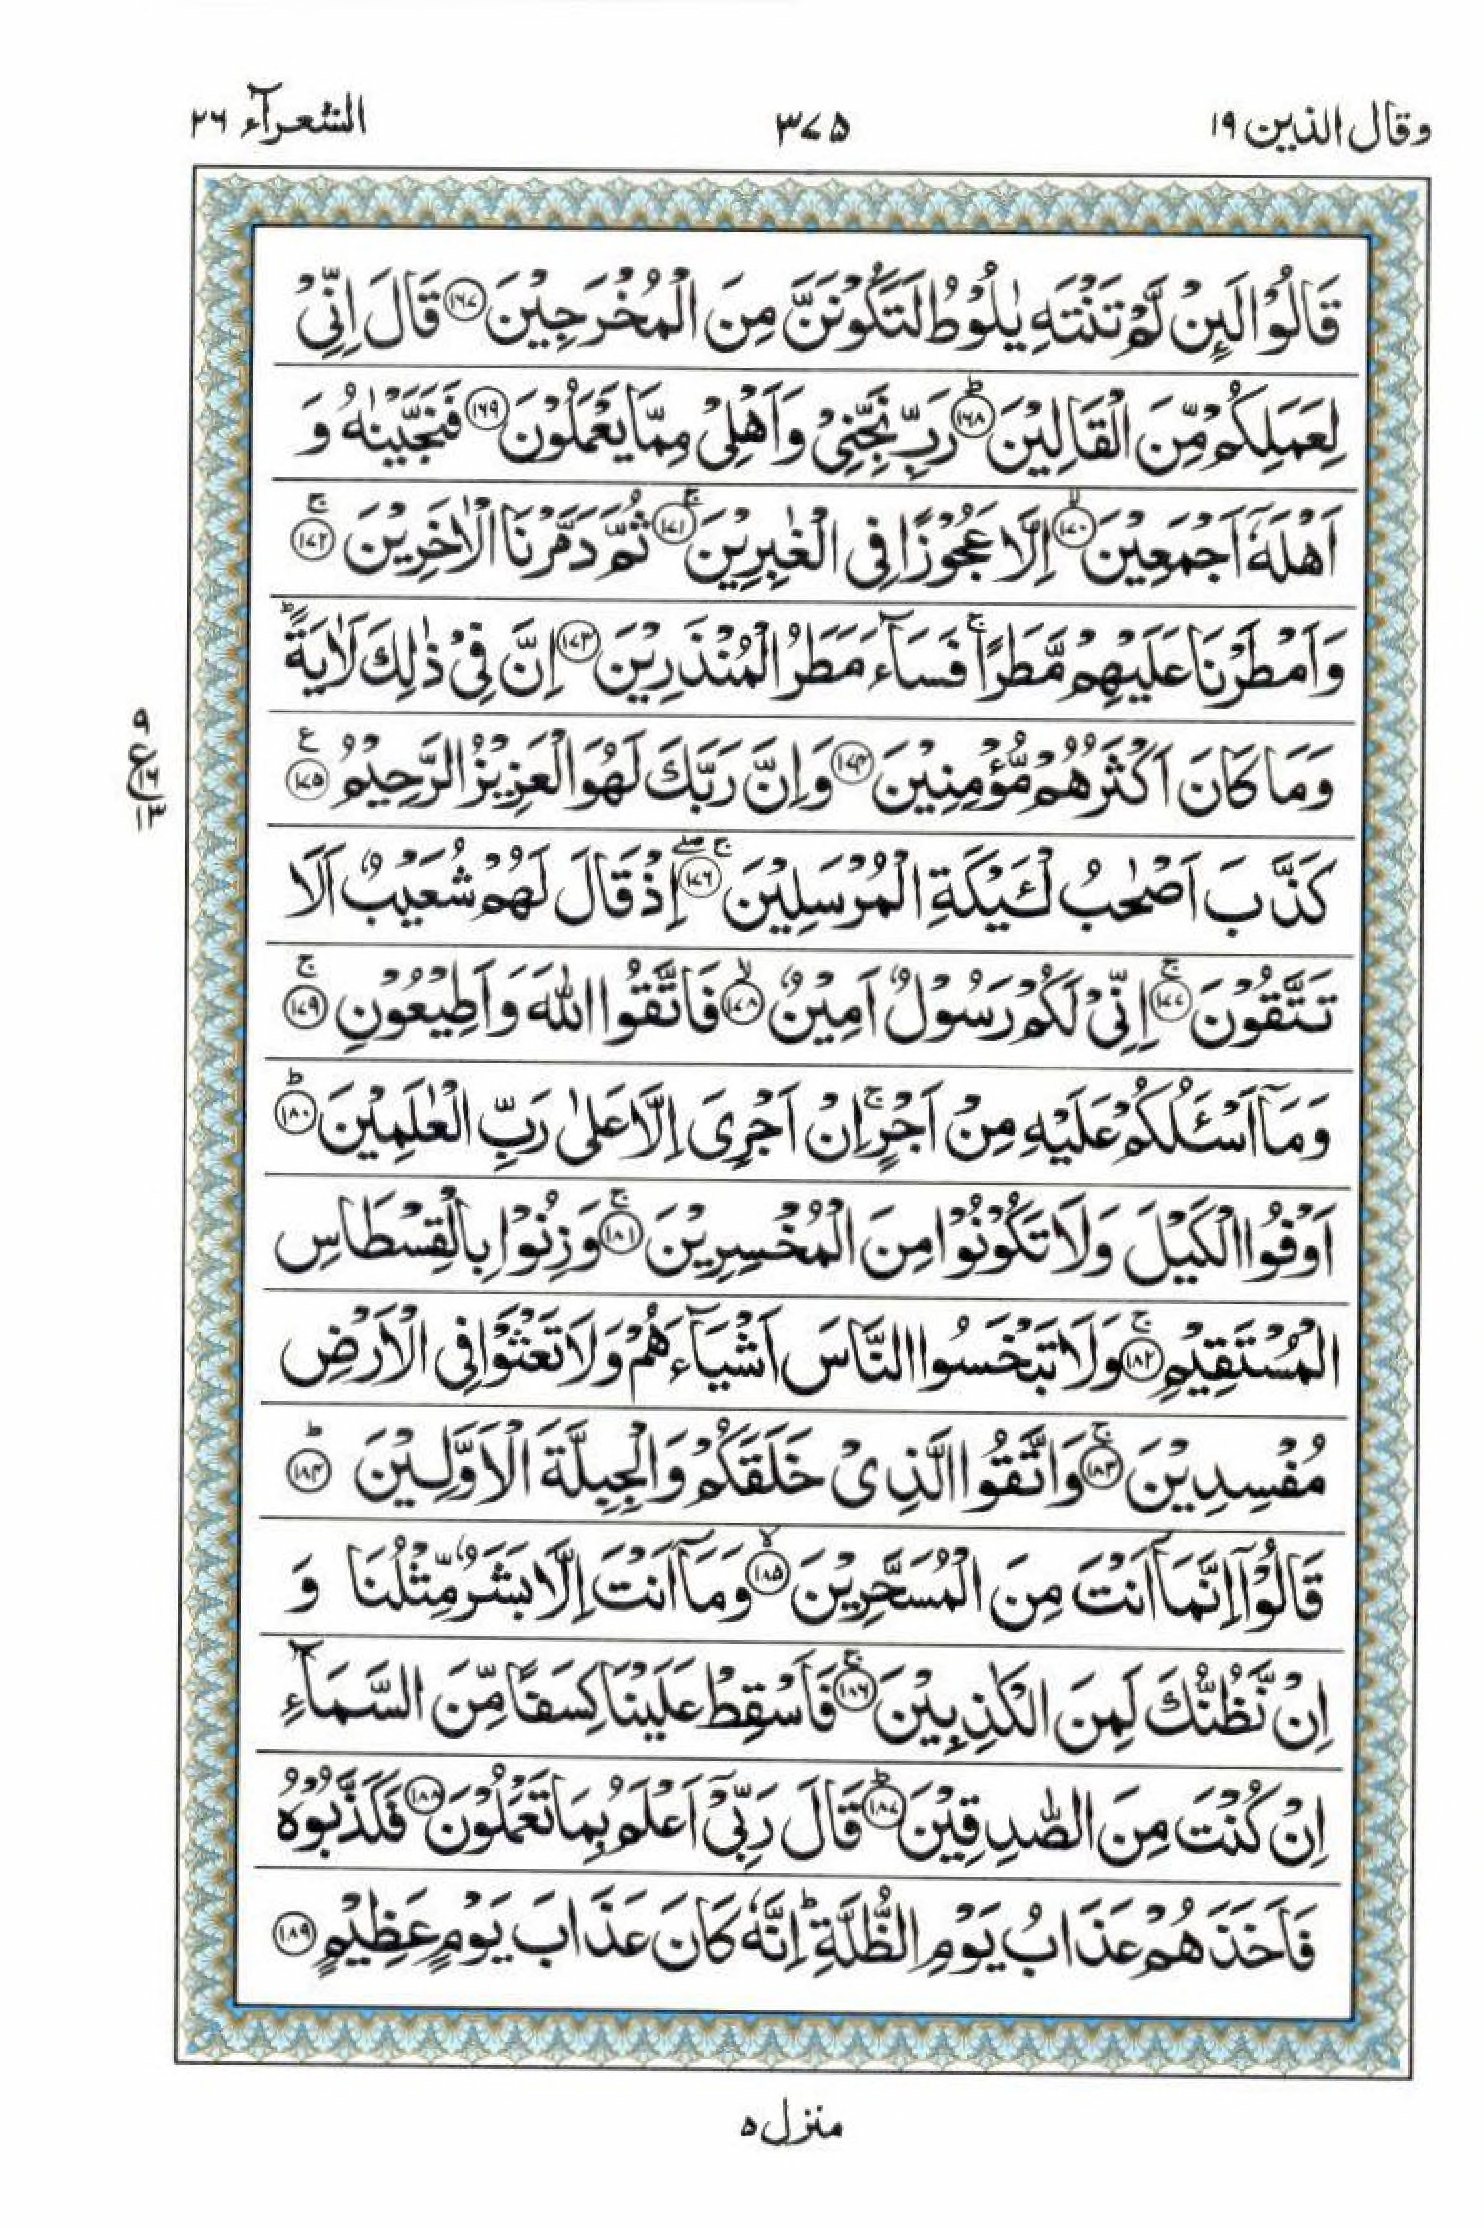 وقال الذین ۱۹ ۳۷۵ الشعرآء ۲۶
قَالُوْا لَىِٕنْ لَّمْ تَنْتَهِ یٰلُوْطُ لَتَكُوْنَنَّ مِنَ الْمُخْرَجِیْنَ ۝۱۶۷ قَالَ اِنِّیْ
لِعَمَلِكُمْ مِّنَ الْقَالِیْنَ ۝۱۶۸ؕ رَبِّ نَجِّنِیْ وَ اَهْلِیْ مِمَّا یَعْمَلُوْنَ ۝۱۶۹ فَنَجَّیْنٰهُ وَ
اَهْلَهٗۤ اَجْمَعِیْنَ ۝۱۷۰ۙ اِلَّا عَجُوْزًا فِی الْغٰبِرِیْنَ ۝۱۷۱ۚ ثُمَّ دَمَّرْنَا الْاٰخَرِیْنَ ۝۱۷۲ۚ
وَ اَمْطَرْنَا عَلَیْهِمْ مَّطَرًا ۚ فَسَآءَ مَطَرُ الْمُنْذَرِیْنَ ۝۱۷۳ اِنَّ فِیْ ذٰلِكَ لَاٰیَةً ؕ
وَ مَا كَانَ اَكْثَرُهُمْ مُّؤْمِنِیْنَ ۝۱۷۴ وَ اِنَّ رَبَّكَ لَهُوَ الْعَزِیْزُ الرَّحِیْمُ ۝۱۷۵ ع
۹ ع ۱۶ ۱۳
كَذَّبَ اَصْحٰبُ لْـَٔیْكَةِ الْمُرْسَلِیْنَ ۝۱۷۶ۚۖ اِذْ قَالَ لَهُمْ شُعَیْبٌ اَلَا
تَتَّقُوْنَ ۝۱۷۷ۚ اِنِّیْ لَكُمْ رَسُوْلٌ اَمِیْنٌ ۝۱۷۸ۙ فَاتَّقُوا اللّٰهَ وَ اَطِیْعُوْنِ ۝۱۷۹ۚ
وَ مَاۤ اَسْـَٔلُكُمْ عَلَیْهِ مِنْ اَجْرٍ ۚ اِنْ اَجْرِیَ اِلَّا عَلٰی رَبِّ الْعٰلَمِیْنَ ۝۱۸۰ؕ
اَوْفُوا الْكَیْلَ وَ لَا تَكُوْنُوْا مِنَ الْمُخْسِرِیْنَ ۝۱۸۱ۚ وَ زِنُوْا بِالْقِسْطَاسِ
الْمُسْتَقِیْمِ ۝۱۸۲ۚ وَ لَا تَبْخَسُوا النَّاسَ اَشْیَآءَهُمْ وَ لَا تَعْثَوْا فِی الْاَرْضِ
مُفْسِدِیْنَ ۝۱۸۳ۚ وَ اتَّقُوا الَّذِیْ خَلَقَكُمْ وَ الْجِبِلَّةَ الْاَوَّلِیْنَ ۝۱۸۴ؕ
قَالُوْۤا اِنَّمَاۤ اَنْتَ مِنَ الْمُسَحَّرِیْنَ ۝۱۸۵ۙ وَ مَاۤ اَنْتَ اِلَّا بَشَرٌ مِّثْلُنَا وَ
اِنْ نَّظُنُّكَ لَمِنَ الْكٰذِبِیْنَ ۝۱۸۶ۚ فَاَسْقِطْ عَلَیْنَا كِسَفًا مِّنَ السَّمَآءِ
اِنْ كُنْتَ مِنَ الصّٰدِقِیْنَ ۝۱۸۷ؕ قَالَ رَبِّیْۤ اَعْلَمُ بِمَا تَعْمَلُوْنَ ۝۱۸۸ فَكَذَّبُوْهُ
فَاَخَذَهُمْ عَذَابُ یَوْمِ الظُّلَّةِ ؕ اِنَّهٗ كَانَ عَذَابَ یَوْمٍ عَظِیْمٍ ۝۱۸۹
منزل ۵